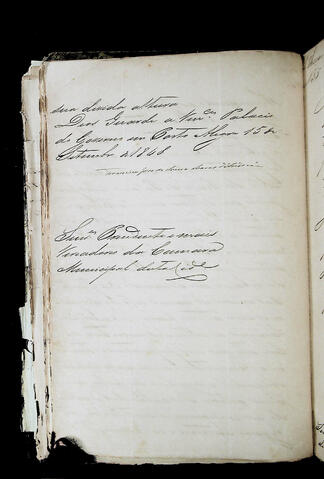 sua devida altura
Deos Guarde a Vmces. Palacio
do Governo em Porto Alegre 15 de
Setembro de 1848
Senres. Presidente e mais
Vereadores da Camara
Municipal desta Cide